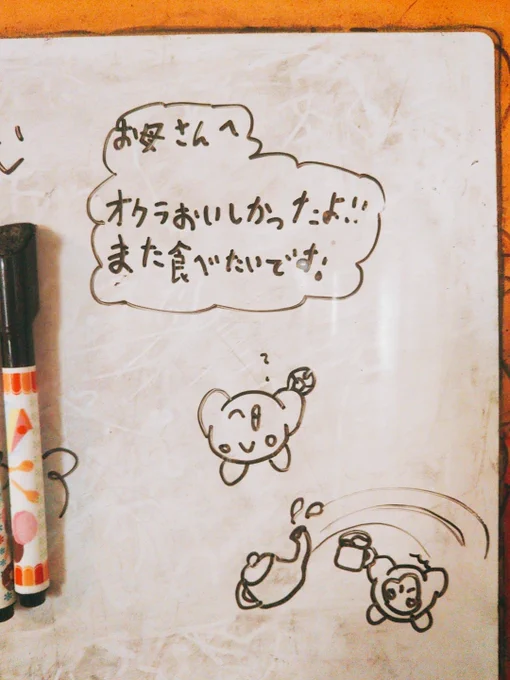 お母さんへ
オクラおいしかったよ!!
また食べたいです!
?